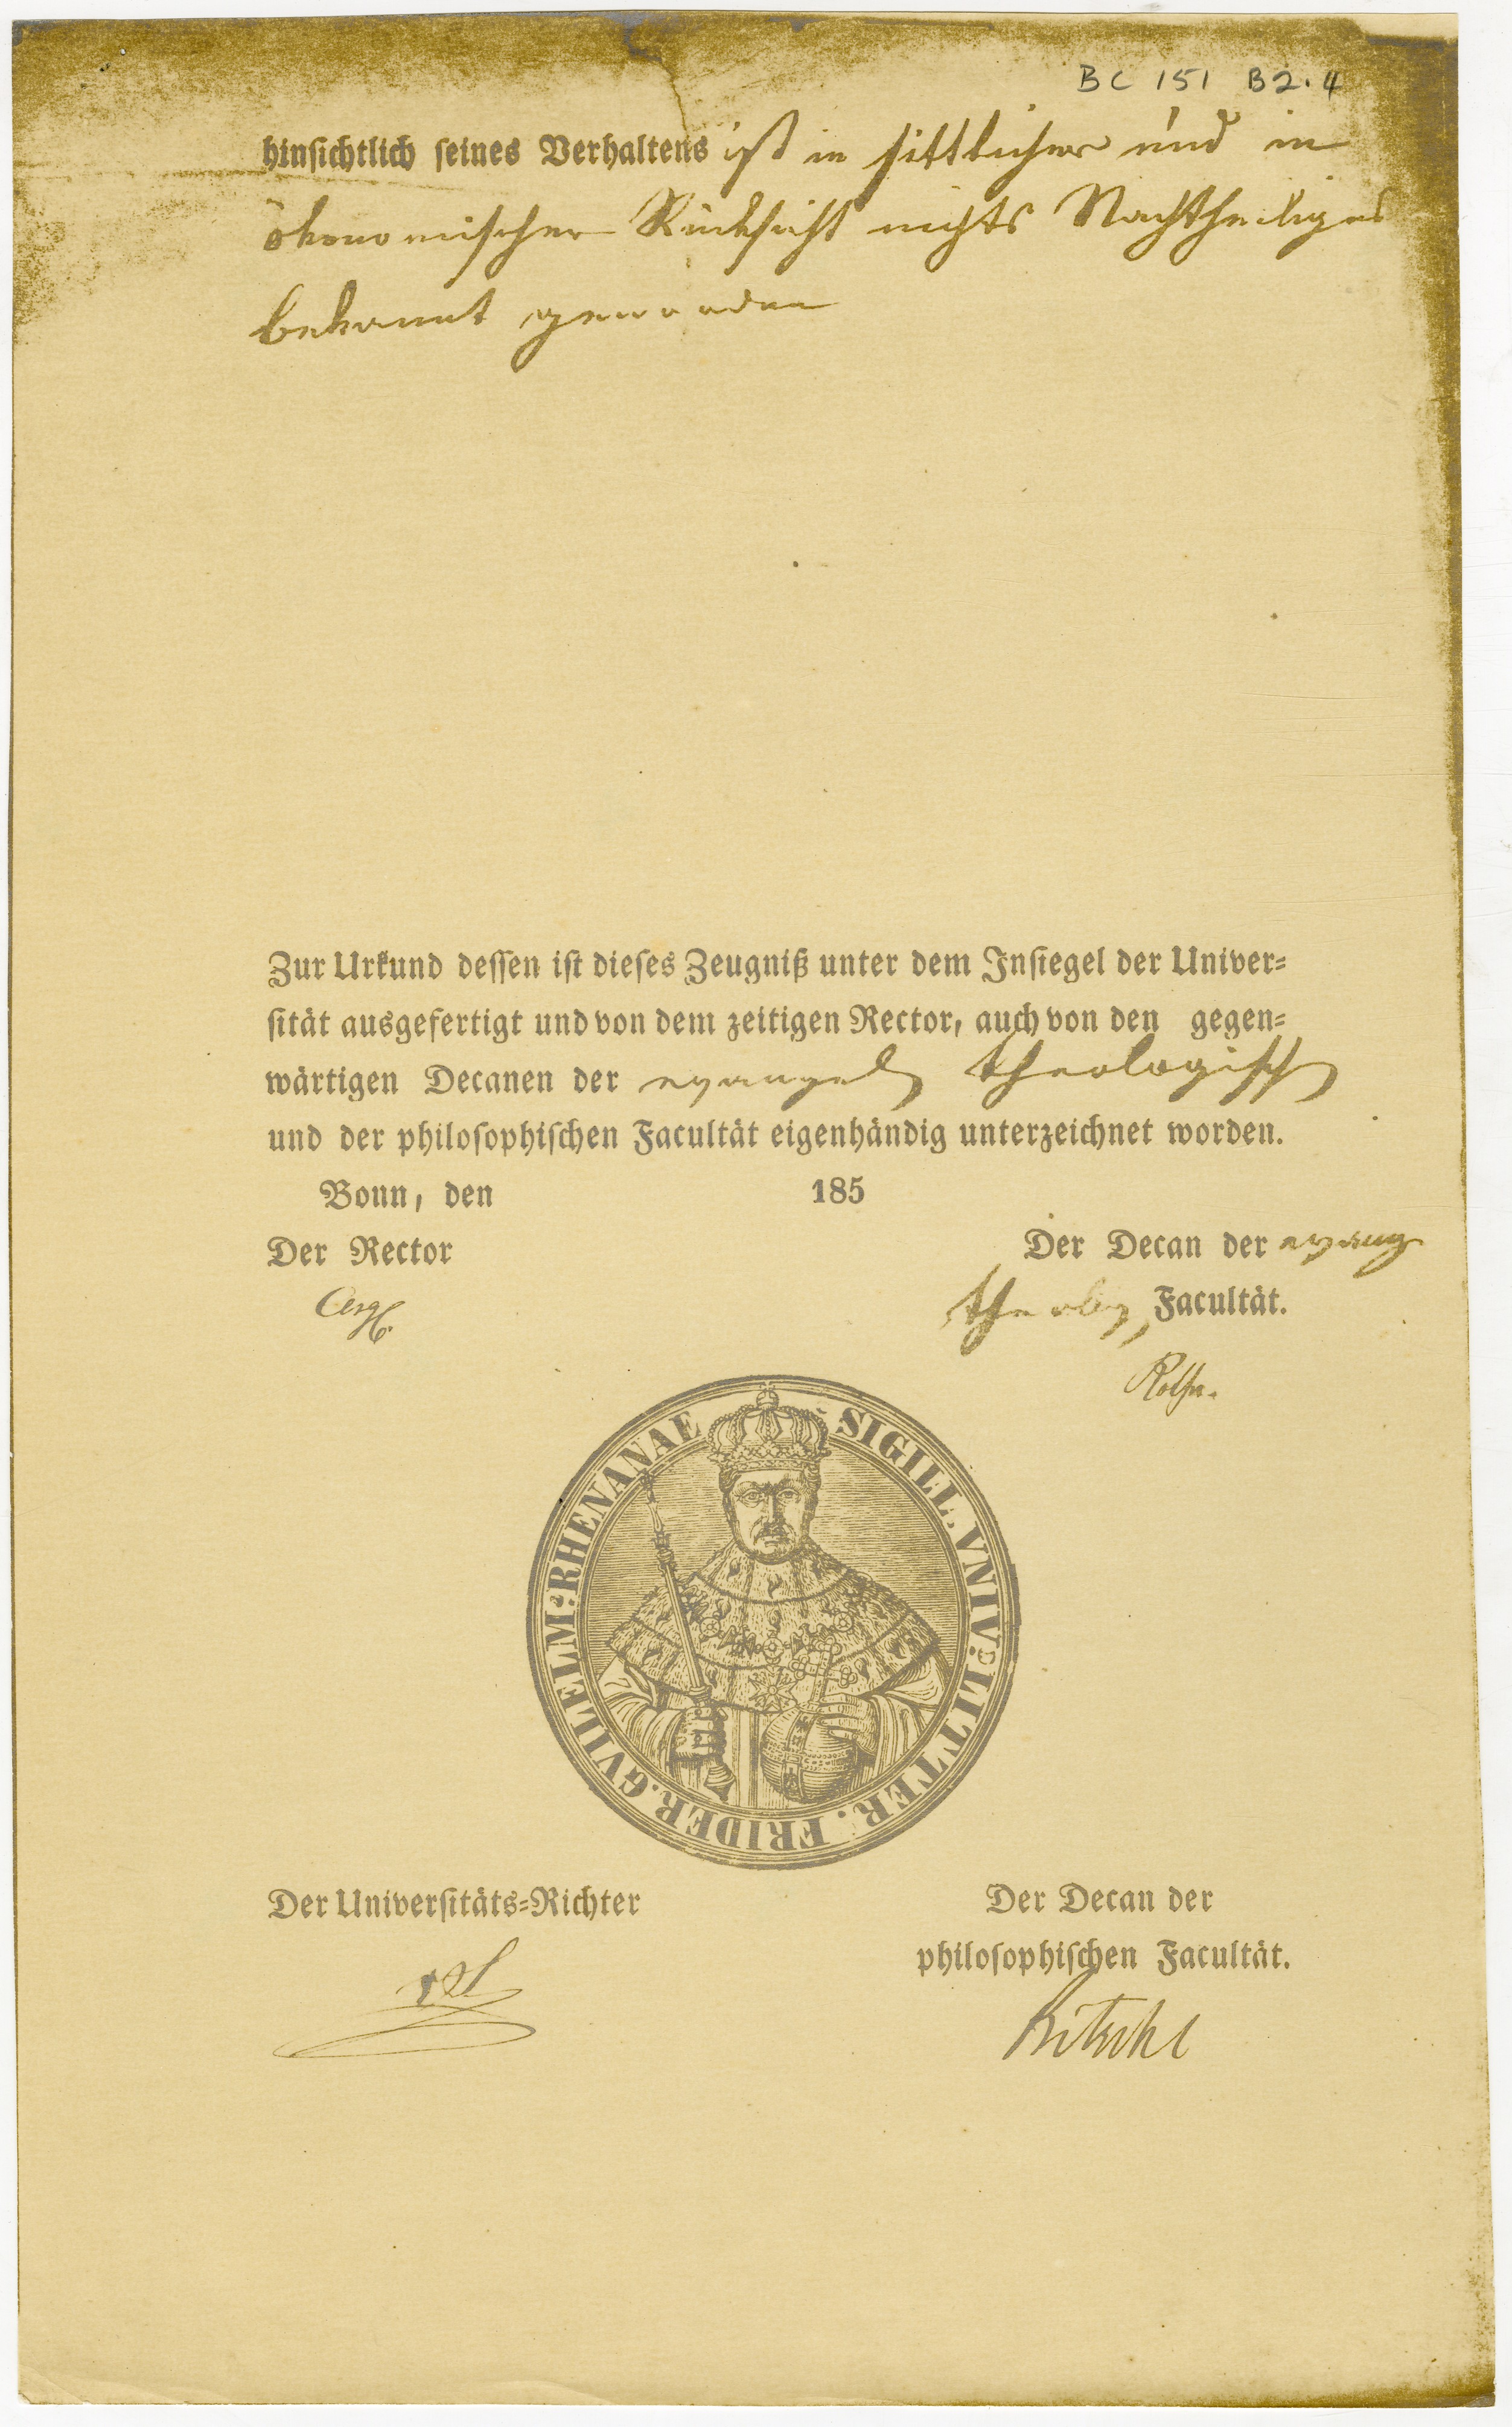 BC 151 B2.4
hinsichtlich seines Verhaltens ist in sittlicher und in
ökonomischer Rücksicht nichts Nachtheiliges
bekannt geworden
Zur Urkund dessen ist dieses Zeugniß unter dem Insiegel der Univer=
sität ausgefertigt und von dem zeitigen Rector, auch von den gegen=
wärtigen Decanen der evangel theologisch
und der philosophischen Facultät eigenhändig unterzeichnet worden.
Bonn, den 185
Der Rector
Der Decan der evang
theolog Facultät.
Rothe.
SIGILL. VNIV. LITTER. FRIDER. GVILELM. RHENANAE
Der Universitäts=Richter
Der Decan der
philosophischen Facultät.
Ritschl